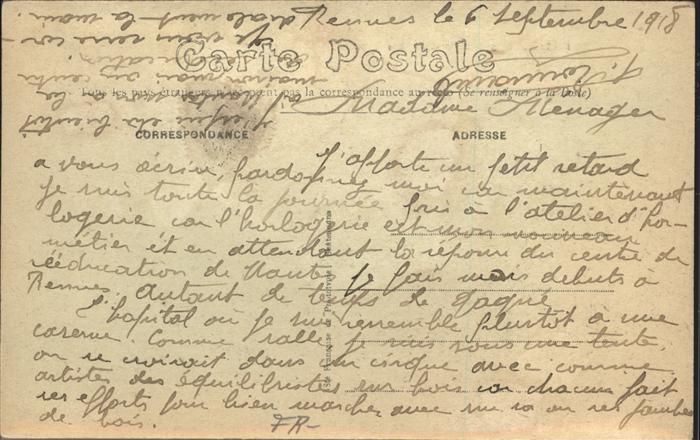 Rennes le 6 septembre 1918
Carte Postale
Tous les pays étrangers n'acceptent pas la correspondance au recto (Se renseigner à la Poste)
Madame Menager
CORRESPONDANCE
ADRESSE
J'apporte un petit retard
a vous écrire, pardonnez moi car maintenant
je suis toute la journée pris à l'atelier d'hor-
logerie car l'horlogerie est mon nouveau
métier et en attendant la réponse du centre de
rééducation de Nantes je fais mes debuts à
Rennes. Autant de temps de gagné
L'hopital où je suis ressemble plustôt à une
caserne. Comme salle je suis sous une tente.
on se croirait dans un cirque avec comme
artistes des équilibristes sur bois car chacun fait
ses efforts pour bien marcher avec une ou ses jambes
de bois.
FR-
J'espère etre bientôt
à Nantes à la
maison mais au centre
Je vous serre cor-
dialement la main.